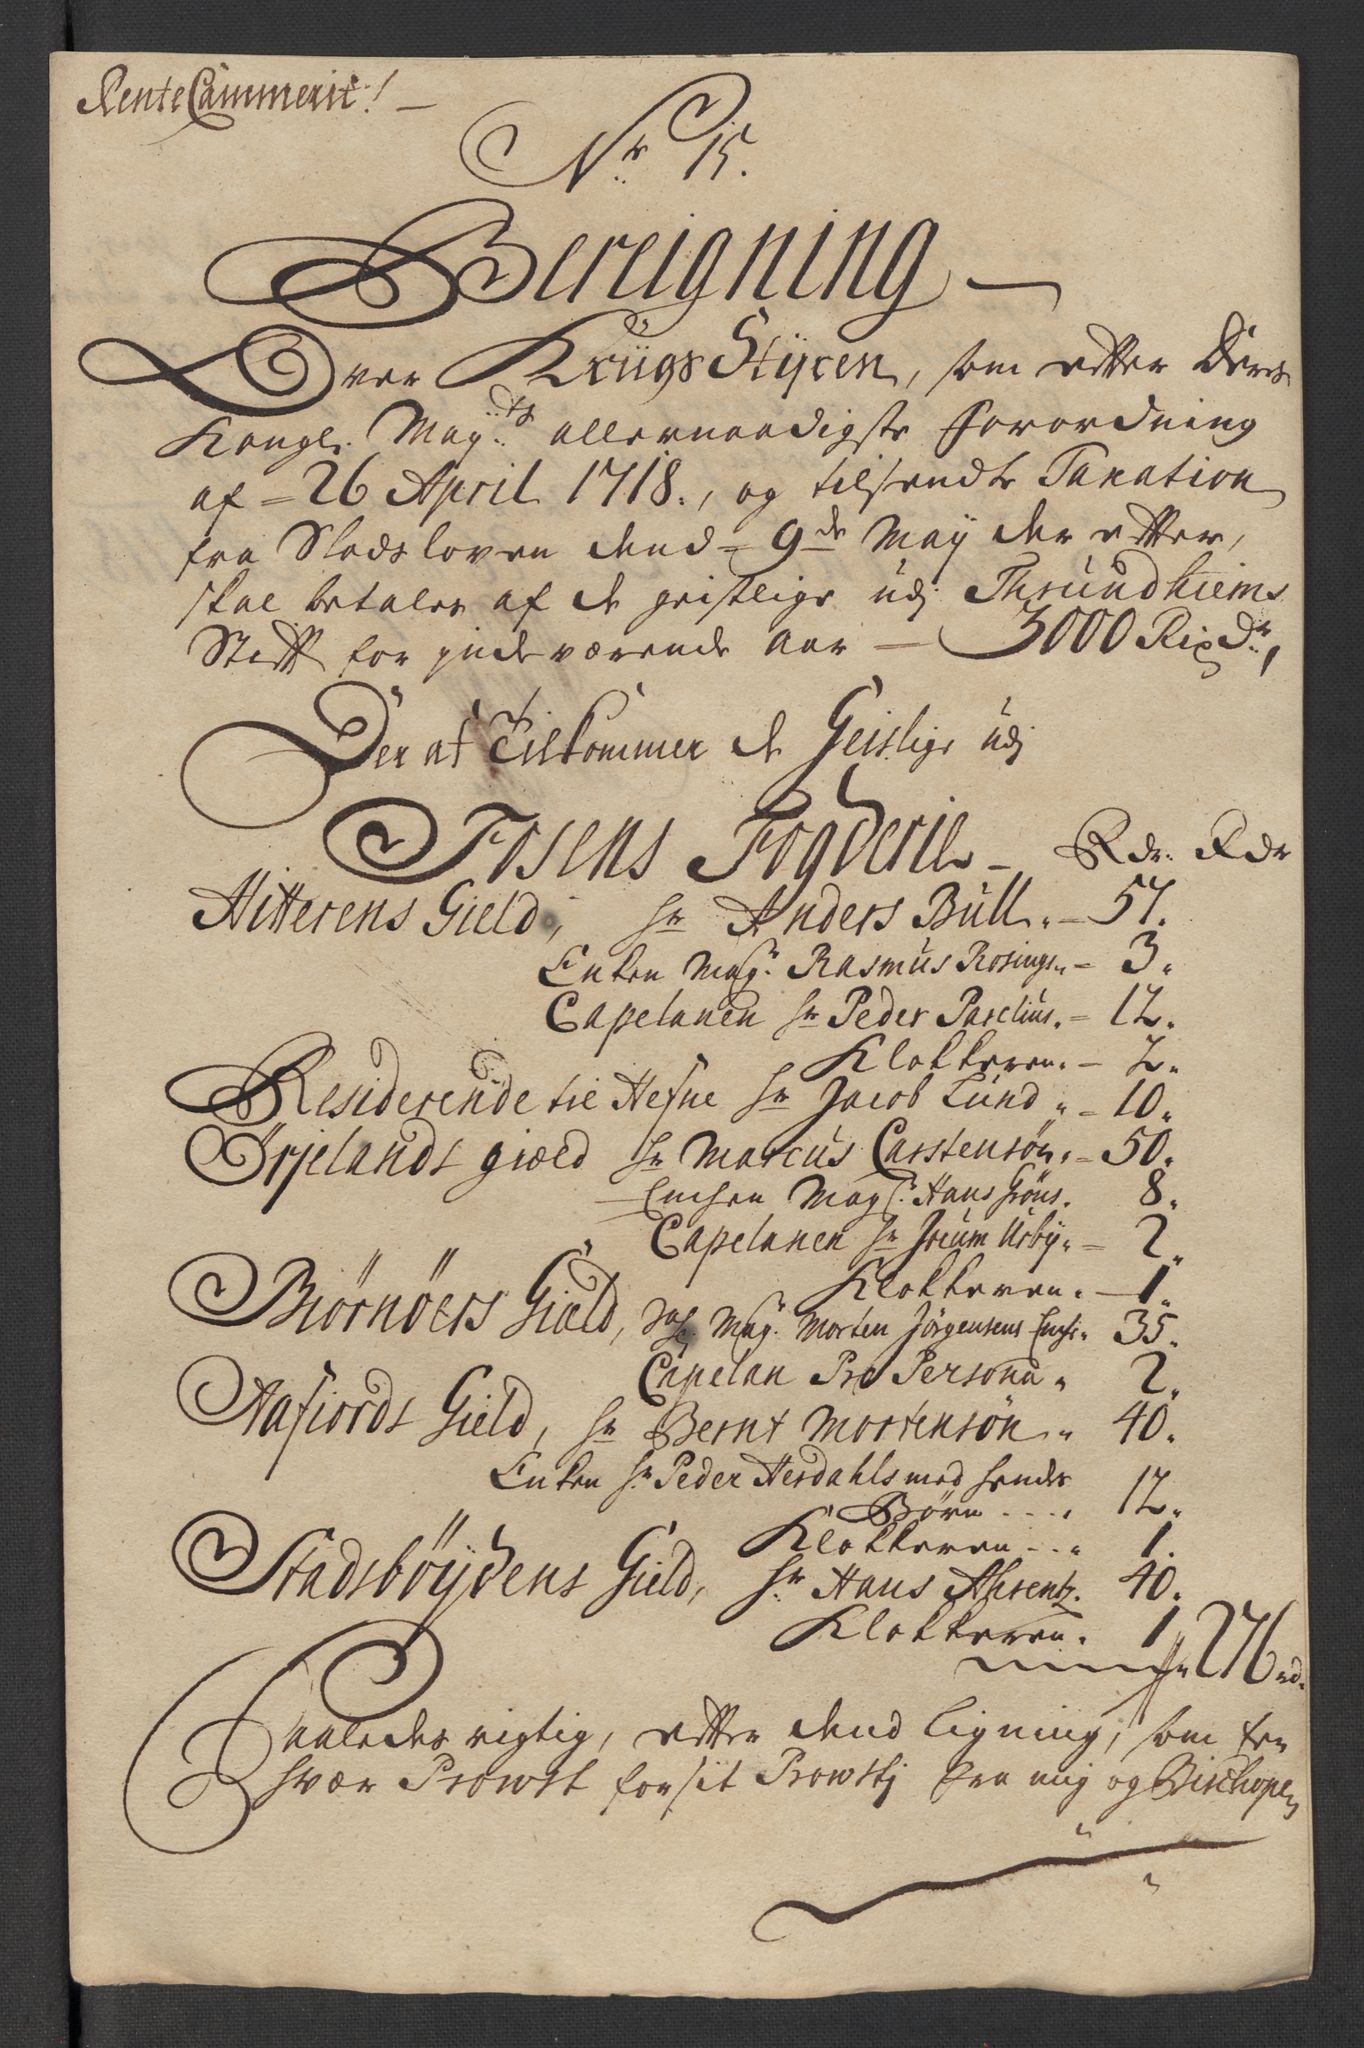 RenteCammerit! —
Nr. 15.
Bereigning —
Over Kriigs Stÿren, som efter Deris
Kongl. Mayts allernaadigste Forordning
af 26 April 1718., og tilsendte Taxation
fra Slodsloven dend 9de Maÿ der efter,
skal betales af de geistlige udj Thrundhiems
Stift for indeværende Aar — 3000 Rixdr.,
Der af Tilkommer de Geistlige udj
Fosens Fogderie — Rdr. Rdr
Hitterens Gield, hr Anders Büll. — 57.
Enken Magr. Rasmus Rosings. — 3.
Capelanen hr Peder Parelius. — 12.
Klokkeren. — 2.
Residerende til Hefne hr Jacob Lund. — 10.
Ørjelands gield hr Marcus Carstensøn. — 50.
Enchen Magr. Hans Gröns. 8.
Capelanen hr Jreum Usbÿ. — 2.
Klokkeren. — 1.
Biørnøers Gield, Magr. Morten Jörgensens Enche. 35.
Capelan Pro Persona. 2.
Aafiords Gield, hr Bernt Mortensön. 40.
Enken hr Peder Herdahls med hendes
Börn . . . 12.
Klokkeren . . . 1.
Stadsböÿdens Gield, hr Hans Ahrentz. 40.
Klokkeren. 1
276 rd.
Saaledes rigtig, efter dend ligning, som fra
hver Prowst for sit Prowstj fra mig og Bischopen